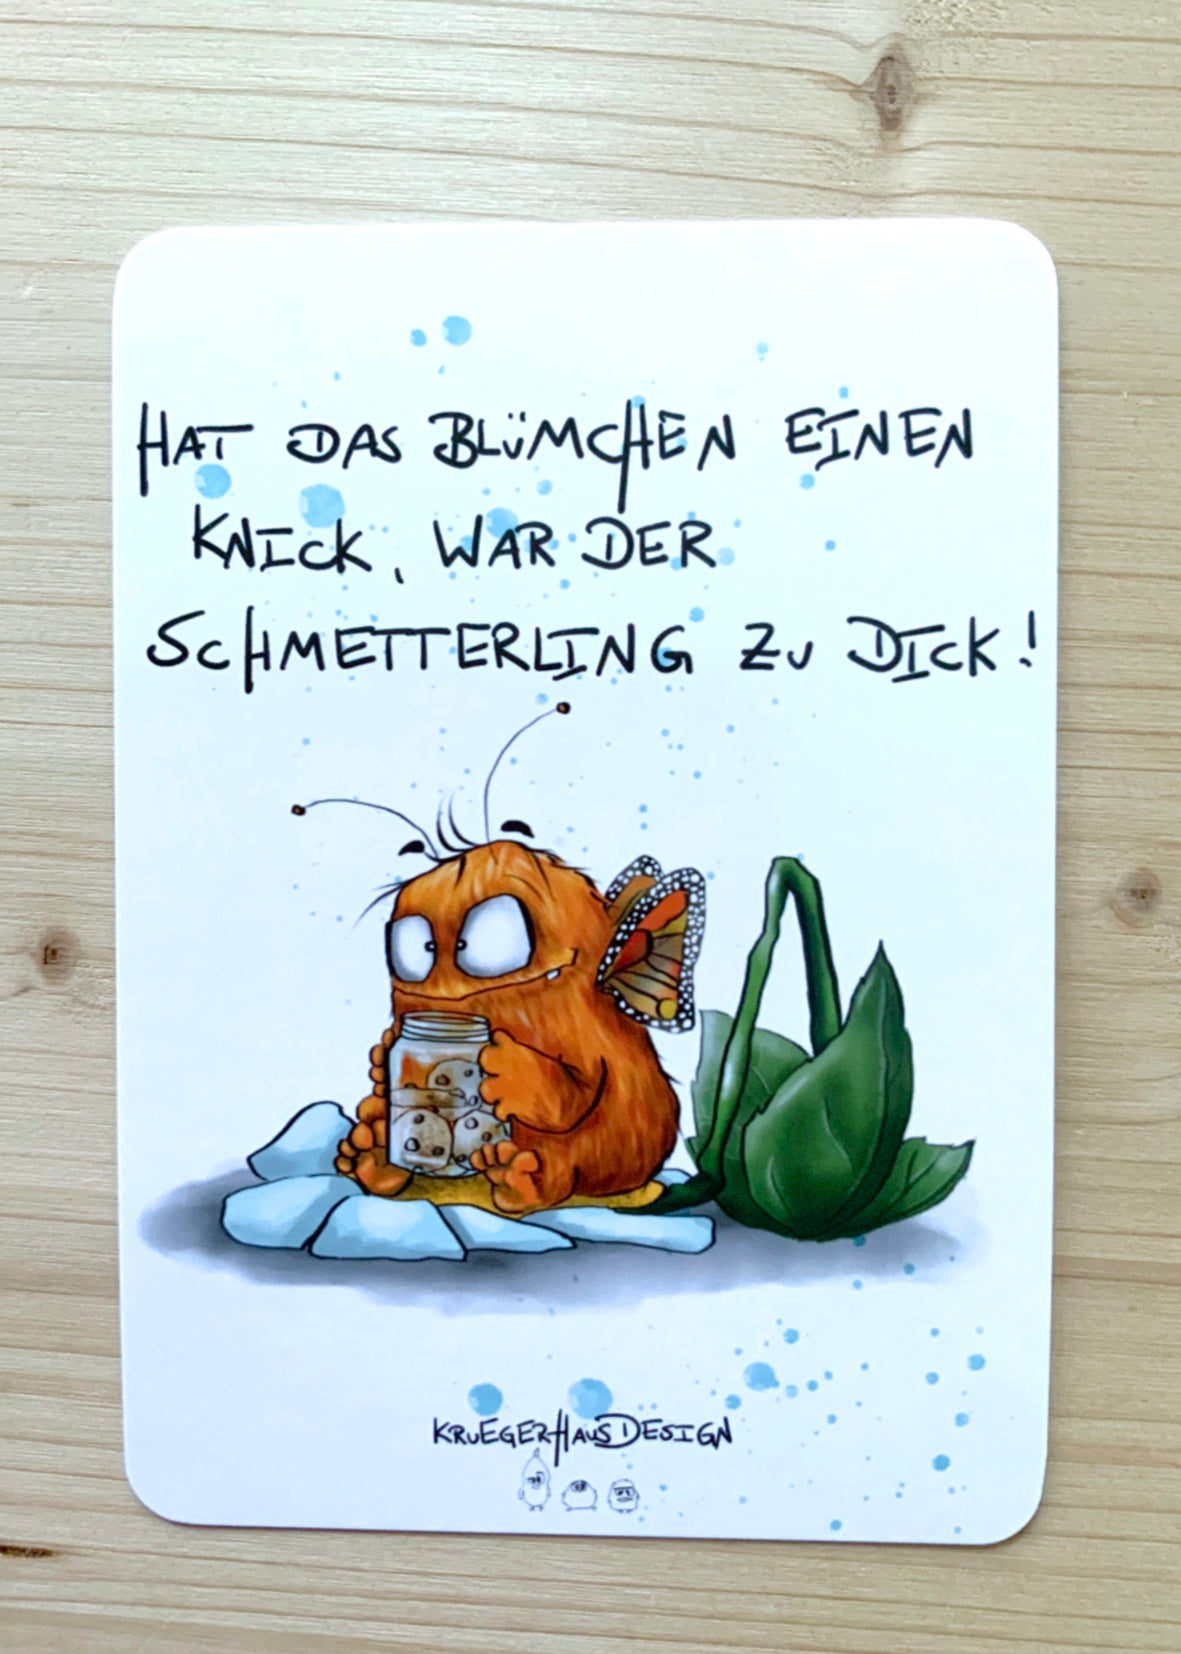 HAT DAS BLÜMCHEN EINEN
KNICK, WAR DER
SCHMETTERLING ZU DICK!
KRUEGERHAUSDESIGN